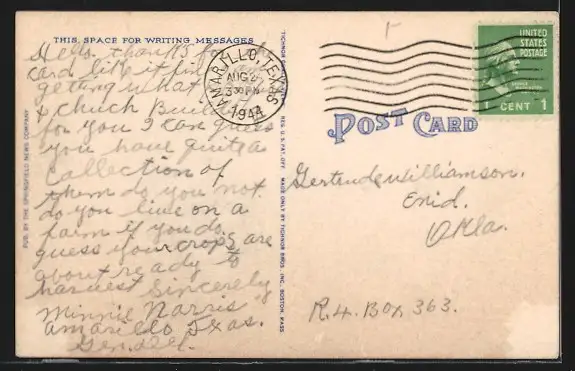 THIS SPACE FOR WRITING MESSAGES
Hello thanks for
card like it fine
getting what
& chuch Building
for you I can guess
you have quite a
Collection of
them do you not
do you live on a
farm if you do
guess your crops are
about ready to
harvest Sincerely
Minnie Norris
Amarillo Texas.
Gen. Del.
PUB. BY THE SPRINGFIELD NEWS COMPANY
REG. U.S. PAT. OFF. MADE ONLY BY TICHNOR BROS., INC., BOSTON, MASS.
AMARILLO, TEXAS
AUG 2
3 30 PM
1944
UNITED STATES
POSTAGE
1 CENT 1
POST CARD
Gertrude Williamson.
Enid.
Okla.
R.4. Box 363.